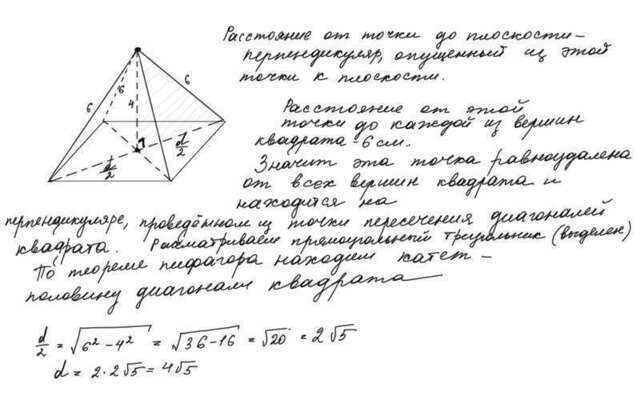 Расстояние от точки до плоскости –
перпендикуляр, опущенный из этой
точки к плоскости.
6
6
6
4
d/2
d/2
Расстояние от этой
точки до каждой из вершин
квадрата - 6 см.
Значит эта точка равноудалена
от всех вершин квадрата и
находится на
перпендикуляре, проведённом из точки пересечения диагоналей
квадрата. Рассматриваем прямоугольный треугольник (выделен)
По теореме пифагора находим катет –
половину диагонали квадрата
d/2 = √(6² – 4²) = √(36 – 16) = √20 = 2√5
d = 2 · 2√5 = 4√5